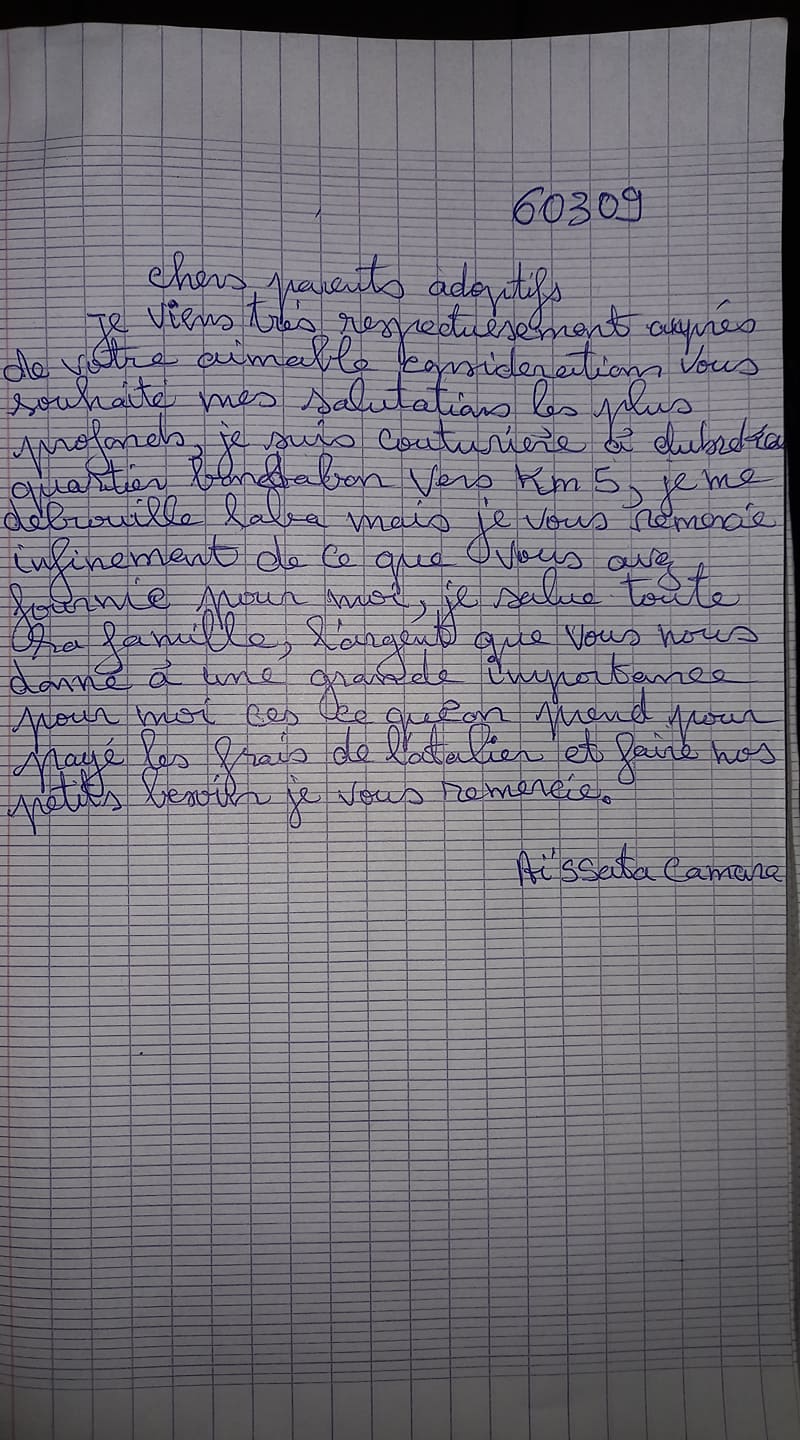 60309
chers parents adoptifs
je viens très respectuesement auprès
de votre aimable consideration vous
souhaité mes salutations les plus
profonds, je suis couturière à dubréka
quartier vers Km5, je me
debrouille laba mais je vous remercie
infinement de ce que vous avez
fournie pour moi, je salue toute
la famille, l'argent que vous nous
donné à une grande importance
pour moi ces ce qu'on prend pour
payé les frais de l'atalier et faire nos
petits besoin je vous remercie.
Aïssata Camara